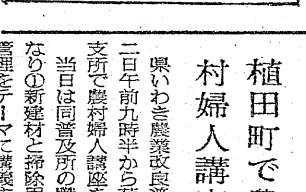 植田町で
村婦人講
県いわき農業改良
二日午前九時半から
支所で農村婦人講座
当日は同普及所の
なり①新建材と掃除
管理をテーマに講義